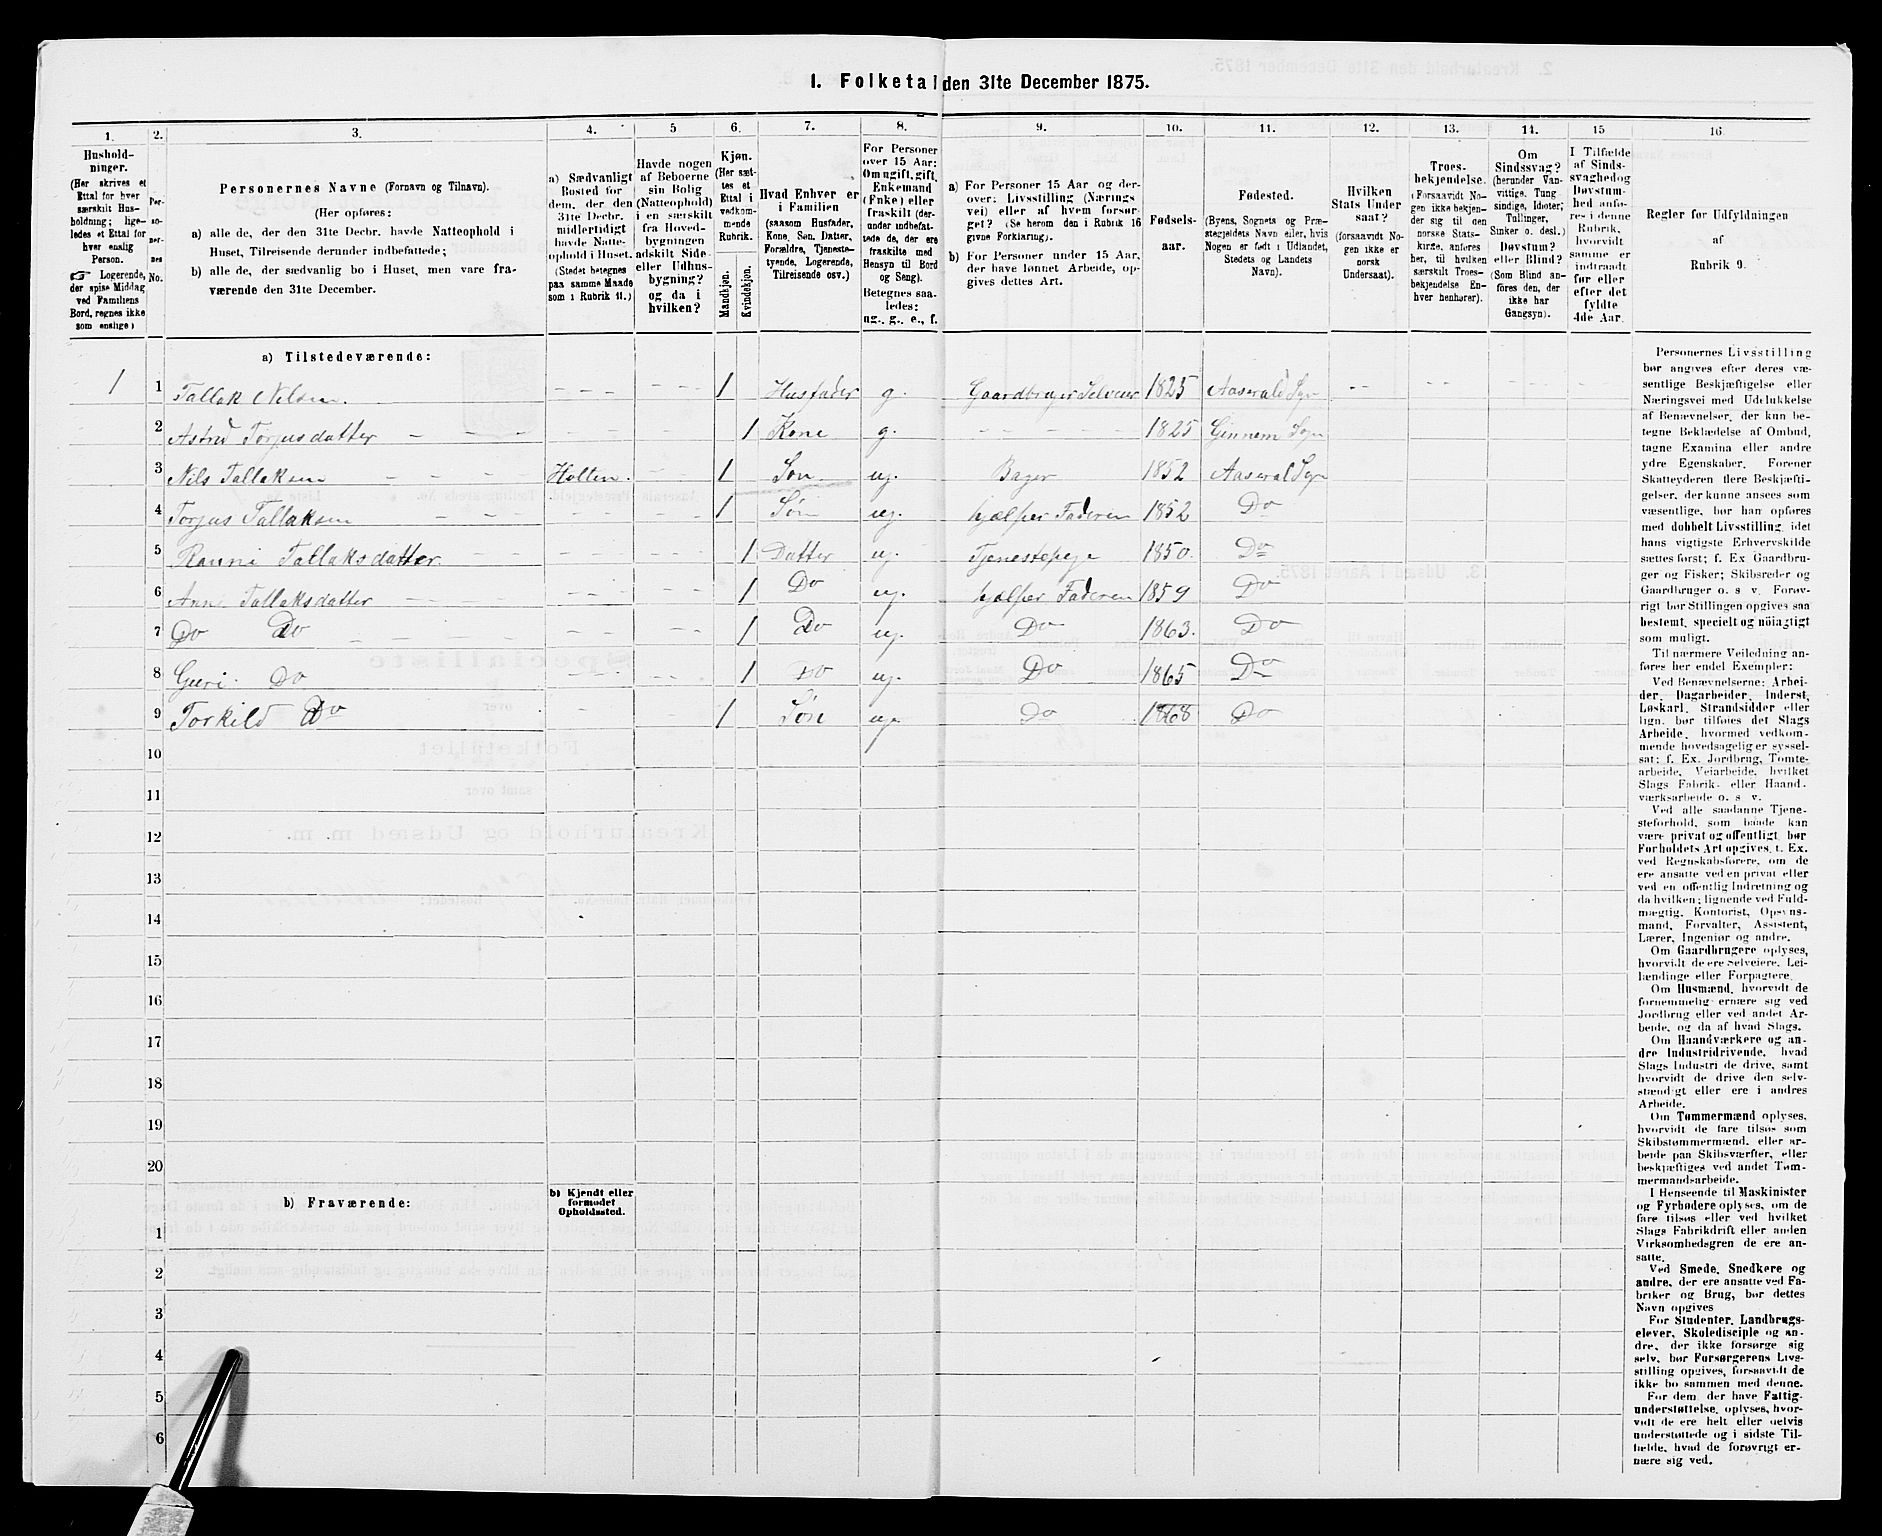 1. Folketal den 31te December 1875.
1.
Hushold-
ninger.
(Her skrives et
Ettal for hver
særskilt Hus-
holdning; lige-
ledes et Ettal for
hver enslig
Person.
☞ Logerende,
der spise Middag
ved Familiens
Bord, regnes ikke
som enslige)
2.
Per-
so-
ner-
nes
No.
3.
Personernes Navne (Fornavn og Tilnavn).
(Her opføres:
a) alle de, der den 31te Decbr. havde Natteophold i
Huset, Tilreisende derunder indbefattede;
b) alle de, der sædvanlig bo i Huset, men vare fra-
værende den 31te December.
4.
a) Sædvanligt
Bosted for
dem, der den
31te Decbr.
midlertidigt
havde Natte-
ophold i Huset.
(Stedet betegnes
paa samme Maade
som i Rubrik 11.)
5
Havde nogen
af Beboerne
sin Bolig
(Natteophold)
i en særskilt
fra Hoved-
bygningen
adskilt Side-
eller Udhus-
bygning?
og da i
hvilken?
6.
Kjøn.
(Her sæt-
tes et
Ettal i
vedkom-
mende
Rubrik.
Mandkjøn.
Kvindekjøn.
7.
Hvad Enhver er
i Familien
(saasom Husfader,
Kone, Søn, Datter,
Forældre, Tjeneste-
tyende, Logerende,
Tilreisende osv.)
8.
For Personer
over 15 Aar:
Om ugift, gift,
Enkemand
(Enke) eller
fraskilt (der-
under indbefat-
tede de, der ere
fraskilte med
Hensyn til Bord
og Seng).
Betegnes saa-
ledes:
ug., g., e., f.
9.
a) For Personer 15 Aar og der-
over: Livsstilling (Nærings-
vei) eller af hvem forsør-
get? (Se herom den i Rubrik 16
givne Forklaring).
b) For Personer under 15 Aar,
der have lønnet Arbeide, op-
gives dettes Art.
10.
Fødsels-
aar.
11.
Fødested.
(Byens, Sognets og Præ-
stegjeldets Navn eller, hvis
Nogen er født i Udlandet,
Stedets og Landets
Navn).
12.
Hvilken
Stats Under
saat?
(forsaavidt No-
gen ikke er
norsk
Undersaat).
13.
Troes-
bekjendelse.
(Forsaavidt No-
gen ikke bekjen-
der sig til den
norske Stats-
kirke, anføres
her, til hvilken
særskilt Troes-
bekjendelse En-
hver henhører).
14.
Om
Sindssvag?
(herunder Van-
vittige, Tung
sindige, Idioter,
Tullinger,
Sinker o. desl.)
Døvstum?
eller Blind?
(Som Blind an-
føres den, der
ikke har
Gangsyn).
15
I Tilfælde
af Sinds-
svaghed og
Døvstum-
hed anfø-
res i denne
Rubrik,
hvorvidt
samme er
indtraadt
før eller
efter det
fyldte
4de Aar.
16
Regler for Udfyldningen
af
Rubrik 9.
a) Tilstedeværende:
1 1 Tallak Nilsen. 1 Husfader g. Gaardbruger Selveier 1825 Aaserald Sogn
2 Astrid Torjusdatter 1 Kone g. 1825 Ginnem Sogn
3 Nils Tallaksen Holten. 1 Søn ug. Bager 1852 Aaserald Sogn
4 Torjus Tallaksen 1 Søn ug. hjælper Faderen 1852 Do
5 Ranni Tallaksdatter 1 Datter ug. Tjenestepige 1850. Do
6 Anne Tallaksdatter 1 Do ug. hjælper Faderen 1859 Do
7 Do Do 1 Do ug. Do 1863. Do
8 Guri Do 1 Do ug. Do 1865 Do
9 Torkild Do 1 Søn ug. Do 1868 Do
10
11
12
13
14
15
16
17
18
19
20
b) Fraværende:
b) Kjendt eller
formodet
Opholdssted.
1
2
3
4
5
6
Personernes Livsstilling
bør angives efter deres væ-
sentlige Beskjæftigelse eller
Næringsvei med Udelukkelse
af Benævnelser, der kun be-
tegne Beklædelse af Ombud,
tagne Examina eller andre
ydre Egenskaber. Forener
Skatteyderen flere Beskjæfti-
gelser, der kunne ansees som
væsentlige, bør han opføres
med dobbelt Livsstilling, idet
hans vigtigste Erhvervskilde
sættes først; f. Ex Gaardbru-
ger og Fisker; Skibsreder og
Gaardbruger o. s v. Forøv-
rigt bør Stillingen opgives saa
bestemt, specielt og nöiagtigt
som muligt.
Til nærmere Veiledning an-
føres her endel Exempler:
Ved Benævnelserne: Arbei-
der, Dagarbeider, Inderst,
Løskarl, Strandsidder eller
lign. bør tilføies det Slags
Arbeide, hvormed vedkom-
mende hovedsagelig er syssel-
sat; f. Ex. Jordbrug, Tomte-
arbeide, Veiarbeide, hvilket
Slags Fabrik- eller Haand-
værksarbeide o. s v.
Ved alle saadanne Tjene-
steforhold, som baade kan
være privat og offentligt, bør
Forholdets Art opgives, t. Ex.
ved Regnskabsførere, om de
ere ansatte ved en privat eller
ved en offentlig Indretning og
da hvilken; lignende ved Fuld-
mægtig, Kontorist, Opsyns-
mand, Forvalter, Assistent,
Lærer, Ingeniør og andre.
Om Gaardbrugere oplyses,
hvorvidt de ere Selveiere, Lei-
lændinge eller Forpagtere.
Om Husmænd, hvorvidt de
fornemmelig ernære sig ved
Jordbrug eller ved andet Ar-
beide, og da af hvad Slags.
Om Haandværkere og an-
dre Industridrivende, hvad
Slags Industri de drive, samt
hvorvidt de drive den selv-
stændigt eller ere i andres
Arbeide.
Om Tømmermænd oplyses,
hvorvidt de fare tilsøs som
Skibstømmermænd, eller ar-
beide paa Skibsværfter, eller
beskjæftiges ved andet Tøm-
mermandsarbeide.
I Henseende til Maskinister
og Fyrbødere oplyses, om de
fare tilsøs eller ved hvilket
Slags Fabrikdrift eller anden
Virksomhedsgren de ere an-
satte.
Ved Smede, Snedkere og
andre, der ere ansatte ved Fa-
briker og Brug, bør dettes
Navn opgives
For Studenter, Landbrugs-
elever, Skoledisciple og an-
dre, der ikke forsørge sig
selv, bør Forsørgerens Livs-
stilling opgives, forsaavidt de
ikke bo sammen med denne.
For dem, der have Fattig-
understøttelse, oplyses, hvor-
vidt de ere helt eller delvis
understøttede og i sidste Til-
fælde, hvad de forøvrigt er-
nære sig ved.